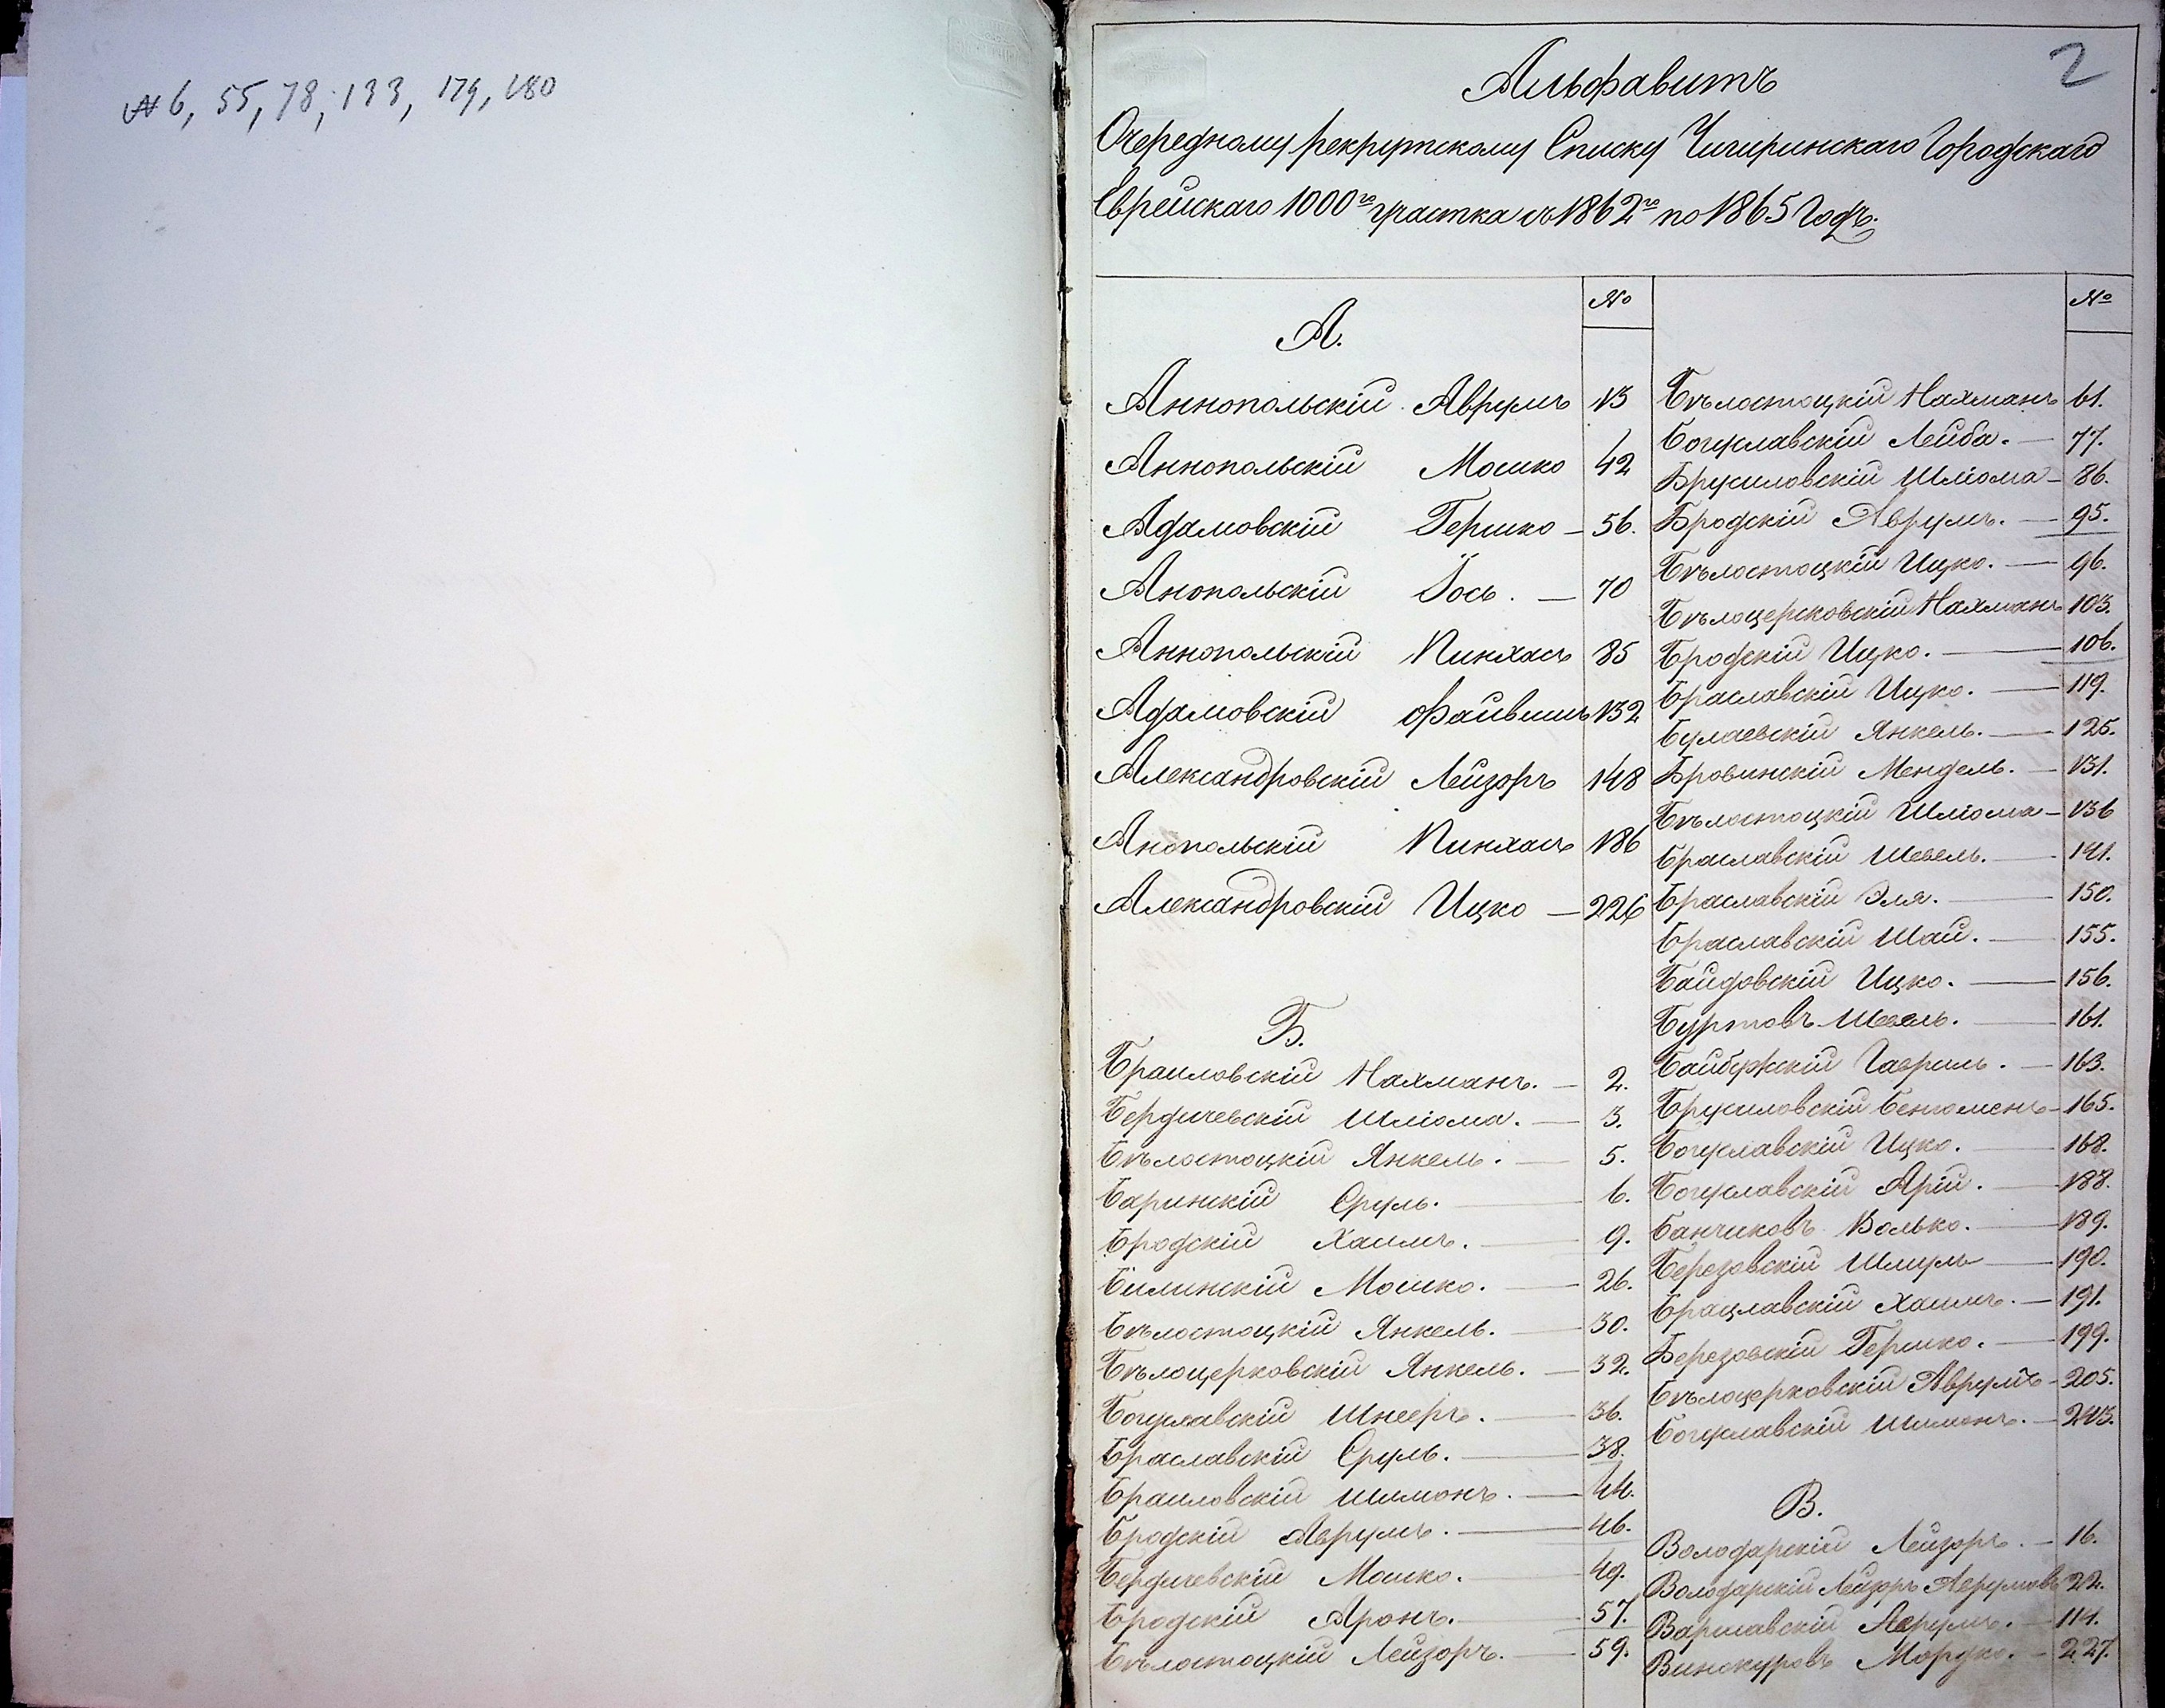 № 6, 55, 78, 133, 179, 180
2
Альфавитъ
Очередному рекрутскому Списку Чигиринскаго Городскаго
Еврейскаго 1000го участка съ 1862го по 1865 Годъ.
№
А.
Аннопольскій Аврумъ 13
Аннопольскій Мошко 42
Адамовскій Гершко — 56.
Анопольскій Іось. — 70
Аннопольскій Пинхасъ 85
Адамовскій Файвишъ 132
Александровскій Лейзоръ 148
Анопольскій Пинхасъ 186
Александровскій Ицко — 226
Б.
Браиловскій Нахманъ. — 2.
Бердичевскій Шліома. — 3.
Бѣлостоцкій Янкель. — 5.
Баринскій Сруль. — 6.
Бродскій Хаимъ. — 9.
Билинскій Мошко. — 26.
Бѣлостоцкій Янкель. — 30.
Бѣлоцерковскій Янкель. — 32.
Богуславскій Шнееръ. — 36.
Браславскій Сруль. — 38.
Браиловскій Шимонъ. — 44.
Бродскій Аврумъ. — 46.
Бердичевскій Мошко. — 49.
Бродскій Аронъ. — 57.
Бѣлостоцкій Лейзоръ. — 59.
№
Бѣлостоцкій Нахманъ 61.
Богуславскій Лейба. — 77.
Брусиловскій Шліома — 86.
Бродскій Аврумъ. — 95.
Бѣлостоцкій Ицко. — 96.
Бѣлоцерковскій Нахманъ 103.
Бродскій Ицко. — 106.
Браславскій Ицко. — 119.
Булаевскій Янкель. — 125.
Бровинскій Мендель. — 131.
Бѣлостоцкій Шліома — 136
Браславскій Шевель. — 141.
Браславскій Эля. — 150.
Браславскій Шай. — 155.
Байдовскій Ицко. — 156.
Буртовъ Шевель. — 161.
Гавриль. — 163.
Брусиловскій Беніоменъ — 165.
Богуславскій Ицко. — 168.
Богуславскій Арій. — 188.
Банчиковъ Волько. — 189.
Березовскій Шмуль — 190.
Брацлавскій Хаимъ. — 191.
Березовскій Гершко. — 199.
Бѣлоцерковскій Аврумъ — 205.
Богуславскій Шимонъ. — 213.
В.
Володарскій Лейзоръ. — 16.
Володарскій Лейзоръ Аврумовъ 22.
Варшавскій Аврумъ. — 114.
Винокуровъ Мордко. — 227.